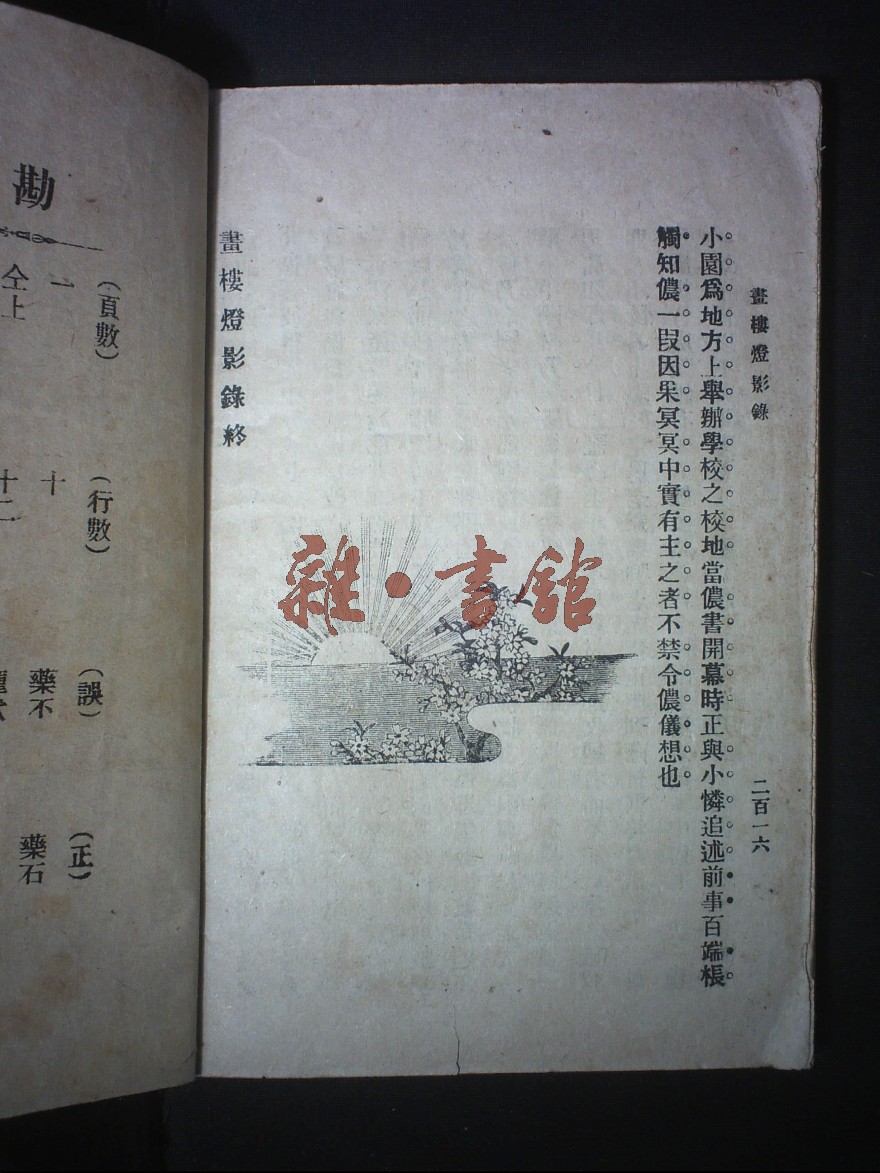 畫樓燈影錄
二百一六
小園爲地方上舉辦學校之校地當儂書開幕時正與小憐追述前事百端棖
觸知儂一段因果冥冥中實有主之者不禁令儂儀想也
畫樓燈影錄終
雜·書舘
勘
(頁數)
(行數)
(誤)
(正)
一
十
藥不
藥石
仝上
十二